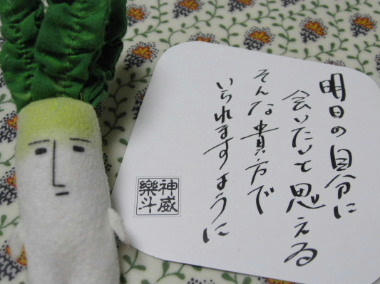 明日の自分に
会いたいと思える
そんな貴方で
いられますように
神威
樂斗